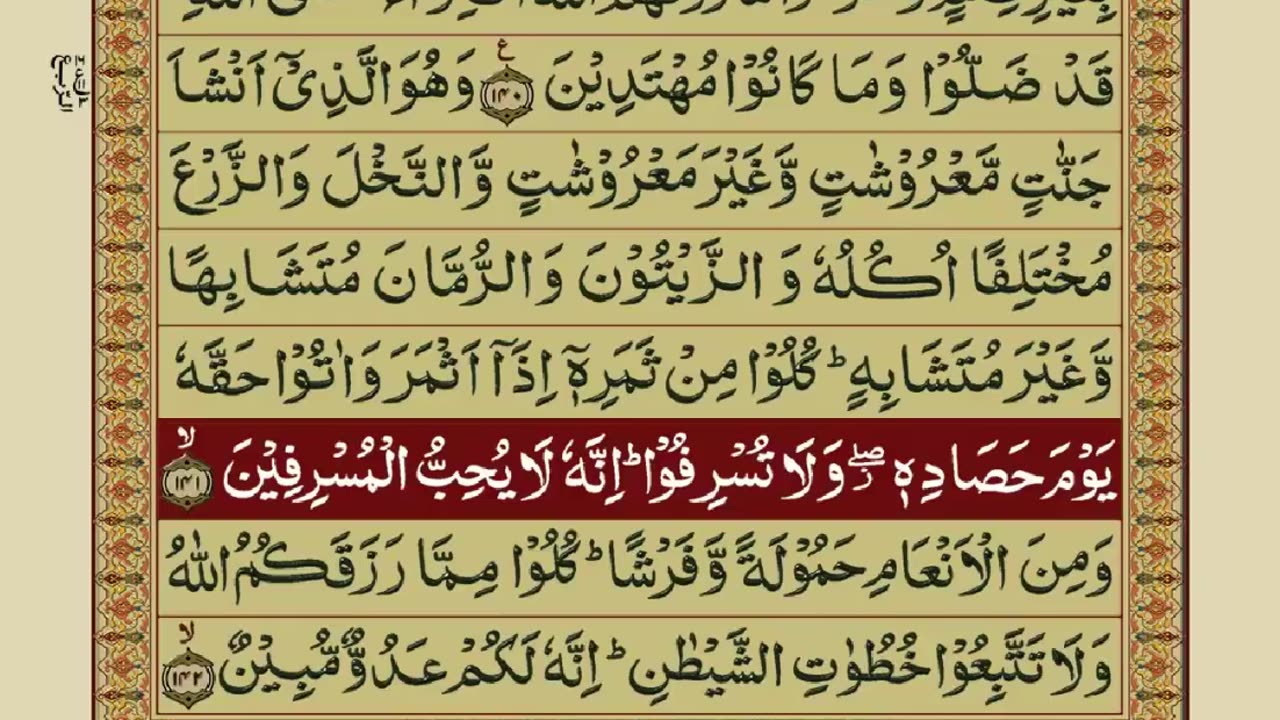 قَدْ ضَلُّوْا وَمَا كَانُوْا مُهْتَدِيْنَ ﴿۱۴۰﴾ ع وَهُوَ الَّذِیْۤ اَنْشَاَ
جَنّٰتٍ مَّعْرُوْشٰتٍ وَّغَيْرَ مَعْرُوْشٰتٍ وَّالنَّخْلَ وَالزَّرْعَ
مُخْتَلِفًا اُكُلُهٗ وَ الزَّيْتُوْنَ وَ الرُّمَّانَ مُتَشَابِهًا
وَّغَيْرَ مُتَشَابِهٍ ؕ كُلُوْا مِنْ ثَمَرِهٖۤ اِذَاۤ اَثْمَرَ وَاٰتُوْا حَقَّهٗ
يَوْمَ حَصَادِهٖ ۖ وَلَا تُسْرِفُوْا ؕ اِنَّهٗ لَا يُحِبُّ الْمُسْرِفِيْنَ ﴿۱۴۱﴾ ۙ
وَمِنَ الْاَنْعَامِ حَمُوْلَةً وَّفَرْشًا ؕ كُلُوْا مِمَّا رَزَقَكُمُ اللّٰهُ
وَلَا تَتَّبِعُوْا خُطُوٰتِ الشَّيْطٰنِ ؕ اِنَّهٗ لَكُمْ عَدُوٌّ مُّبِيْنٌ ﴿۱۴۲﴾ ۙ